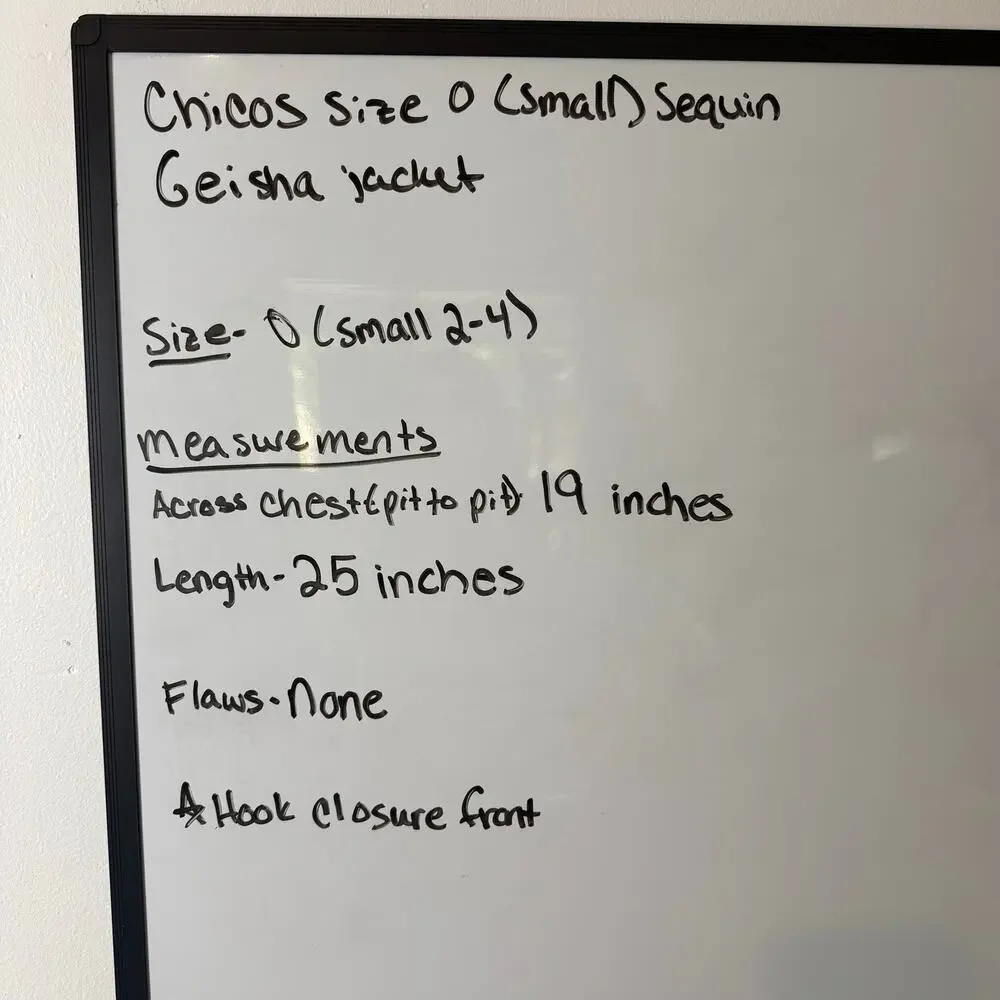 Chicos Size 0 (small) Sequin
Geisha jacket
Size- 0 (small 2-4)
measurements
Across chest(pit to pit) 19 inches
Length- 25 inches
Flaws- none
☆ Hook closure front